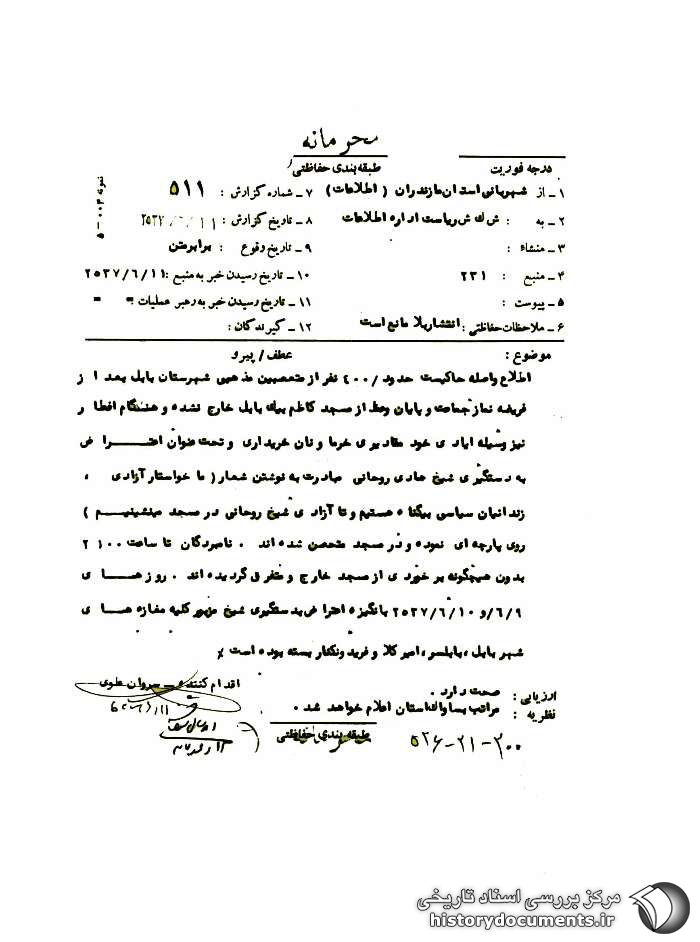 محرمانه
درجه فوریت
طبقه‌بندی حفاظتی
۱ـ از شهربانی استان مازندران (اطلاعات)
۷ـ شماره گزارش : ۵۱۱
۲ـ به : ش ك ش ریاست اداره اطلاعات
۸ـ تاریخ گزارش : ۲۵۳۷/۶/۱۱
۳ـ منشاء :
۹ـ تاریخ وقوع : برابر متن
۴ـ منبع : ۲۳۱
۱۰ـ تاریخ رسیدن خبر به منبع : ۲۵۳۷/۶/۱۱
۵ـ پیوست :
۱۱ـ تاریخ رسیدن خبر به رهبر عملیات : = =
۶ـ ملاحظات حفاظتی : انتشار بلا مانع است
۱۲ـ گیرندگان :
نمونه ۰۰۳ ـ ۵
موضوع :
عطف / پیرو
اطلاع واصله حاکیست حدود /۴۰۰ نفر از متعصبین مذهبی شهرستان بابل بعد از
فریضه نماز جماعت و پایان وعظ از مسجد کاظم بیك بابل خارج نشده و هنگام افطار
نیز وسیله ایادی خود مقادیری خرما و نان خریداری و تحت عنوان اعتراض
به دستگیری شیخ هادی روحانی مبادرت به نوشتن شعار ( ما خواستار آزادی ،
زندانیان سیاسی بیگناه هستیم و تا آزادی شیخ روحانی در مسجد مینشینیم )
روی پارچه ای نموده و در مسجد متحصن شده اند . نامبردگان تا ساعت ۲۱۰۰
بدون هیچگونه برخوردی از مسجد خارج و متفرق گردیده اند . روزهای
۶/۹ و ۲۵۳۷/۶/۱۰ بانگیزه اعتراض بدستگیری شیخ مزبور کلیه مغازه های
شهر بابل ، بابلسر ، امیرکلا و فریدونکنار بسته بوده است ٪
ارزیابی : صحت دارد .
نظریه : مراتب بساواك استان اعلام خواهد شد .
اقدام کننده ـ سروان علوی
طبقه‌بندی حفاظتی
۵۲۶-۲۱-۲۰۰
مرکز بررسی اسناد تاریخی
historydocuments.ir